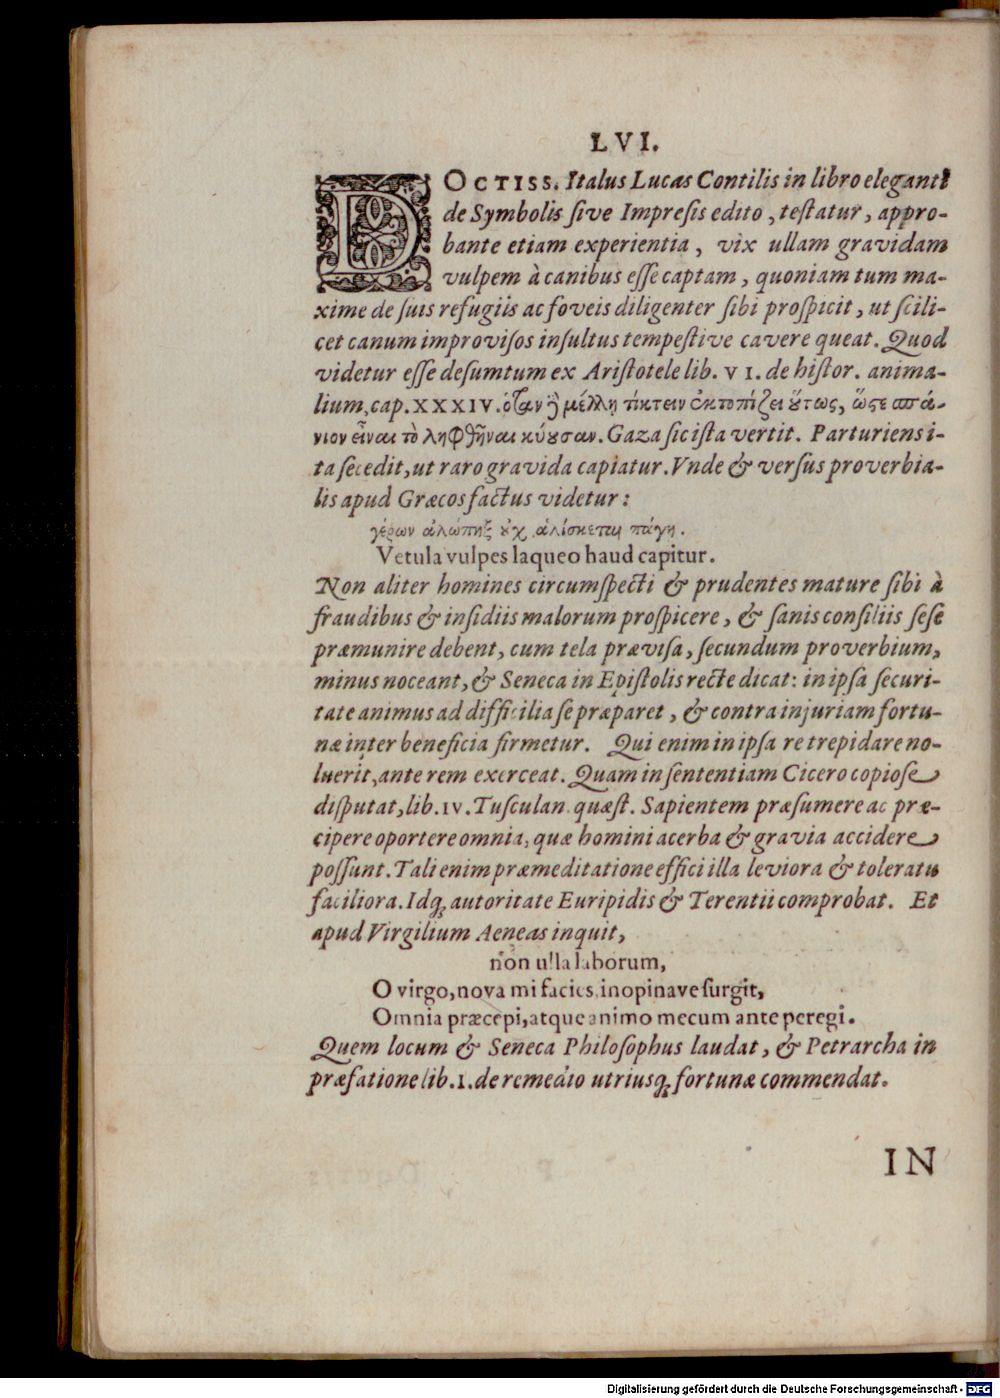 LVI.
DOCTISS. Italus Lucas Contilis in libro eleganti
de Symbolis ſive Impreſis edito, teſtatur, appro-
bante etiam experientia, vix ullam gravidam
vulpem à canibus eſſe captam, quoniam tum ma-
xime de ſuis refugiis ac foveis diligenter ſibi proſpicit, ut ſcili-
cet canum improviſos inſultus tempeſtive cavere queat. Quod
videtur eſſe deſumtum ex Ariſtotele lib. VI. de hiſtor. anima-
lium, cap. XXXIV. ὅταν ἢ μέλλῃ τίκτειν ἐκτοπίζει ὕτως, ὥςε σπά-
νιον εἶναι τὸ ληφθῆναι κύουσαν. Gaza ſic iſta vertit. Parturiens i-
ta ſecedit, ut raro gravida capiatur. Vnde & verſus proverbia-
lis apud Græcos factus videtur:
γέρων ἀλώπηξ οὐχ ἁλίσκεται πάγῃ.
Vetula vulpes laqueo haud capitur.
Non aliter homines circumſpecti & prudentes mature ſibi à
fraudibus & inſidiis malorum proſpicere, & ſanis conſiliis ſeſe
præmunire debent, cum tela præviſa, ſecundum proverbium,
minus noceant, & Seneca in Epiſtolis recte dicat: in ipſa ſecuri-
tate animus ad difficilia ſe præparet, & contra injuriam fortu-
næ inter beneficia firmetur. Qui enim in ipſa re trepidare no-
luerit, ante rem exerceat. Quam in ſententiam Cicero copioſe
diſputat, lib. IV. Tuſculan. quæſt. Sapientem præſumere ac præ-
cipere oportere omnia, quæ homini acerba & gravia accidere
poſſunt. Tali enim præmeditatione effici illa leviora & toleratu
faciliora. Idq; autoritate Euripidis & Terentii comprobat. Et
apud Virgilium Aeneas inquit,
non ulla laborum,
O virgo, nova mi facies, inopinave ſurgit,
Omnia præcepi, atque animo mecum ante peregi.
Quem locum & Seneca Philoſophus laudat, & Petrarcha in
præfatione lib. I. de remedio utriusq; fortunæ commendat.
IN
Digitalisierung gefördert durch die Deutsche Forschungsgemeinschaft - DFG